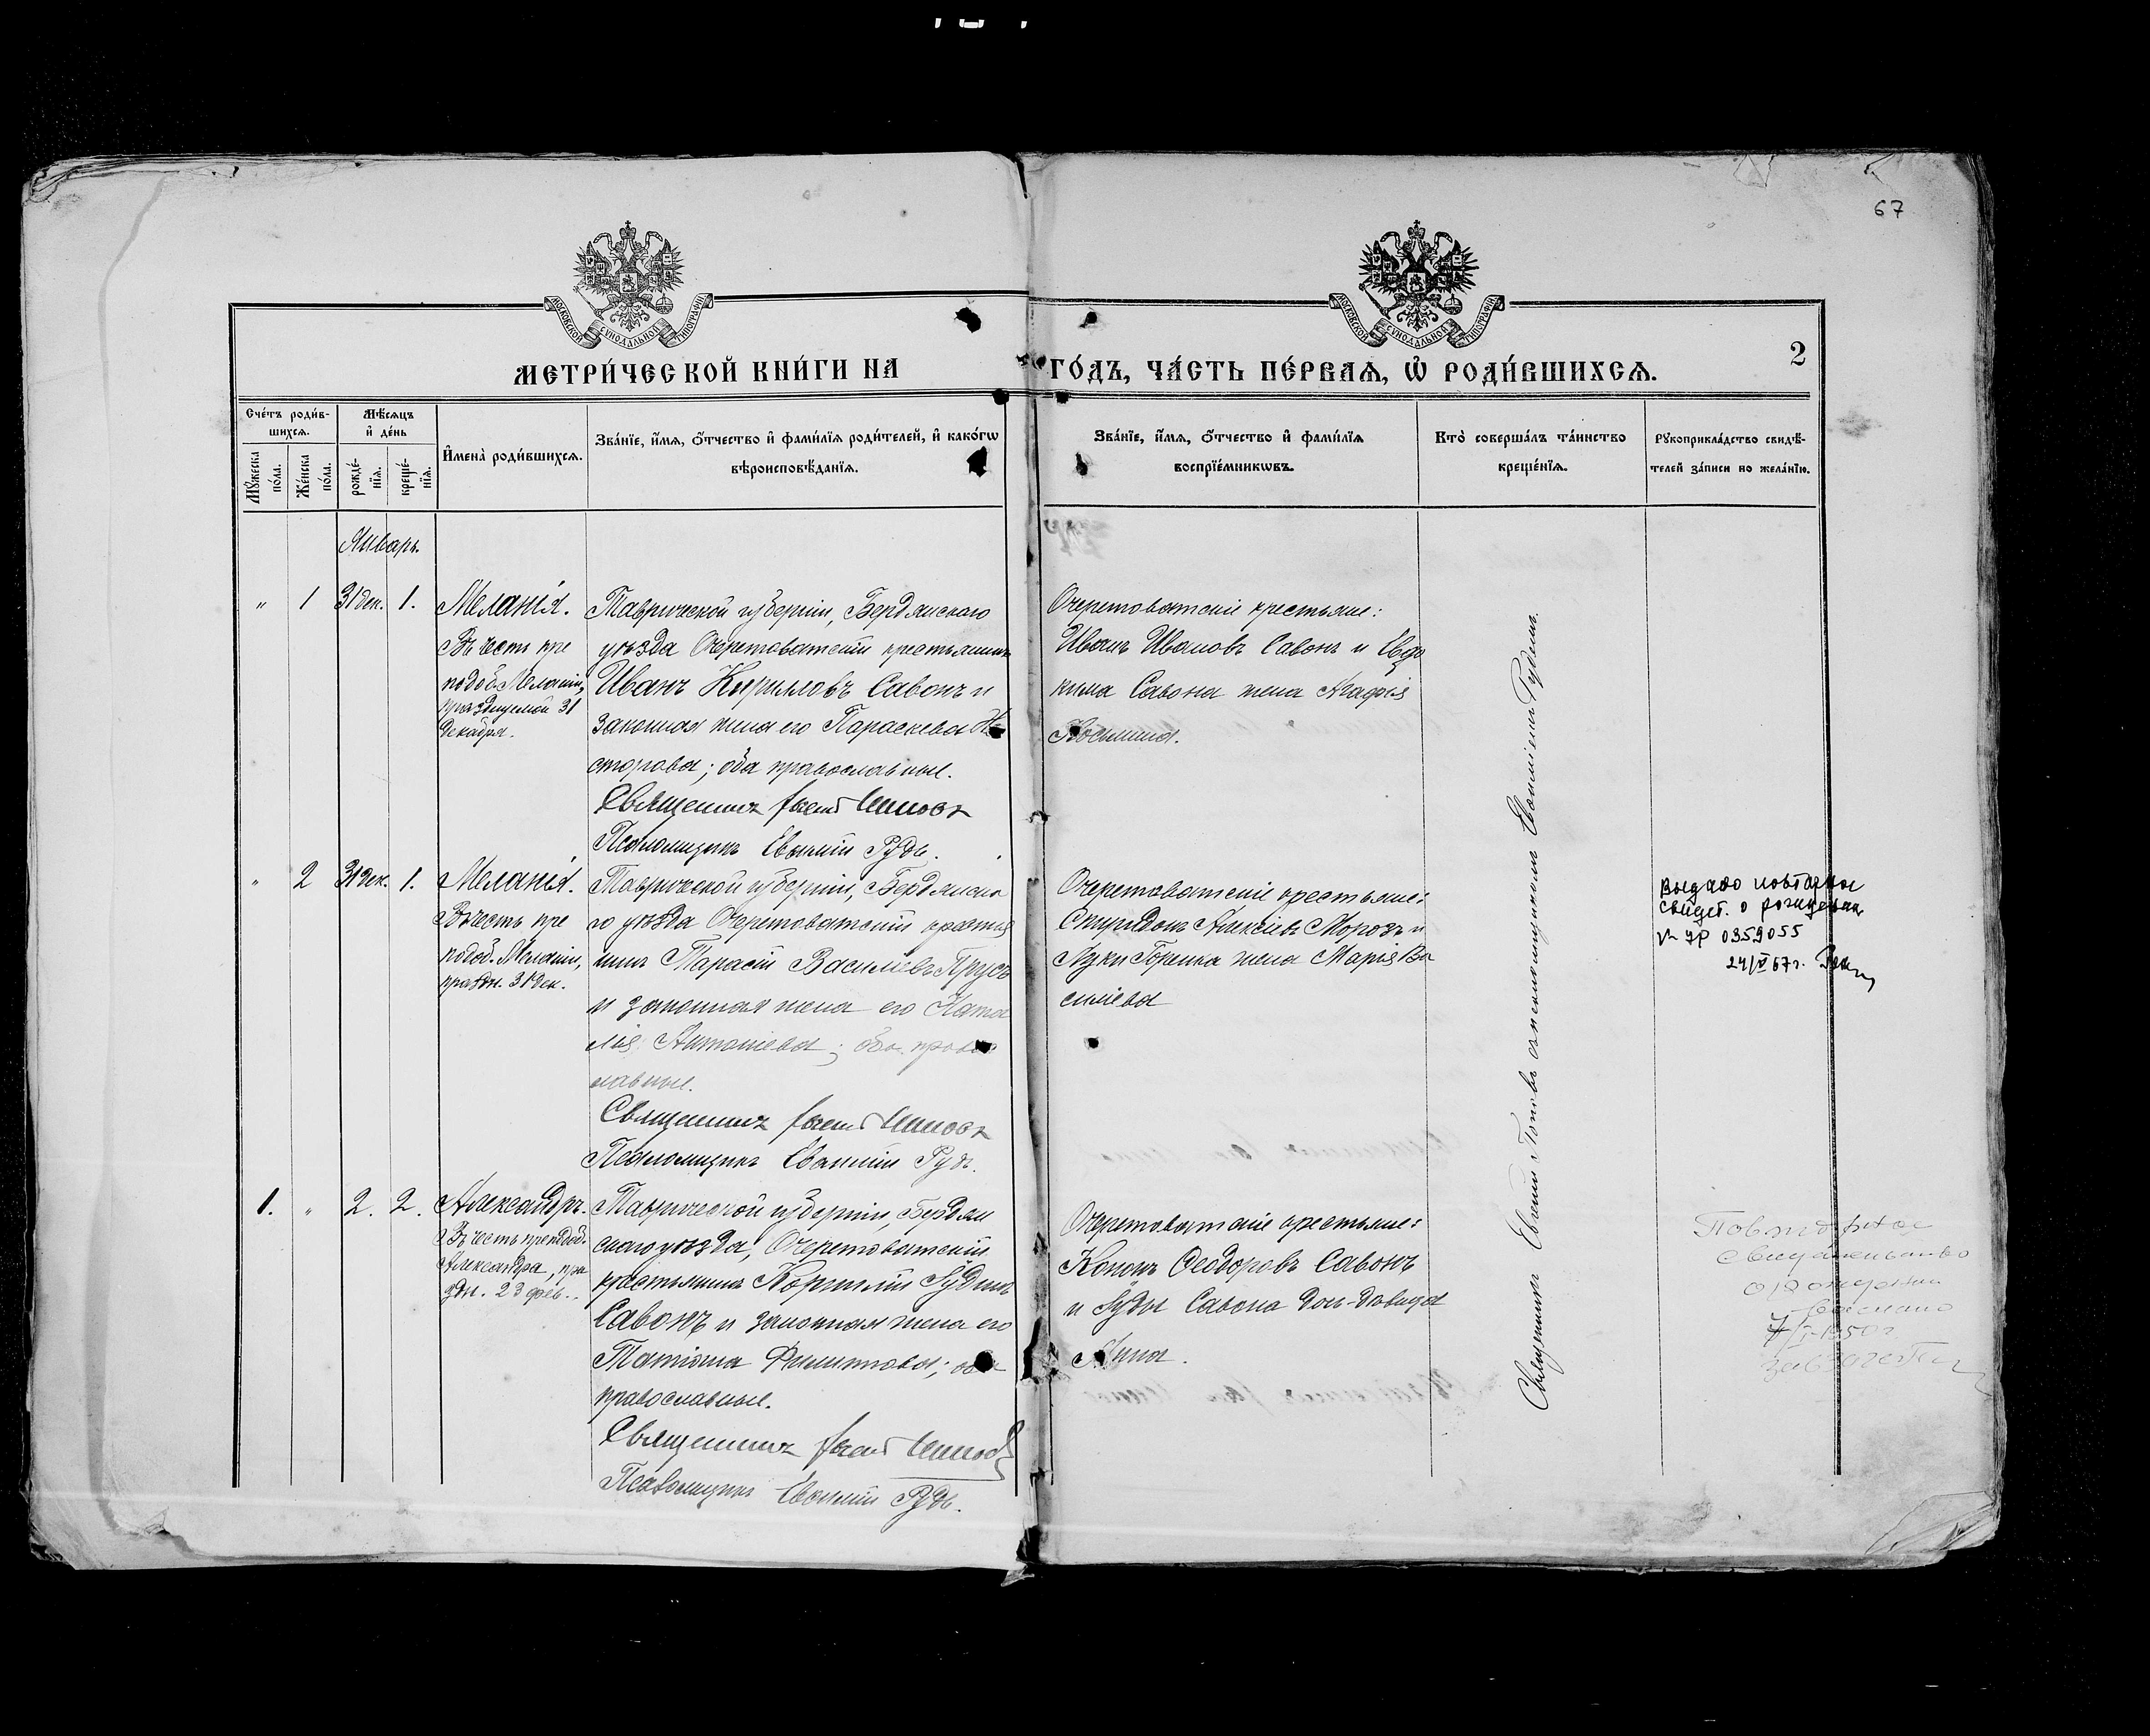 67
МОСКОВСКОЙ СѴНОДАЛЬНОЙ ТИПОГРАФІИ
МОСКОВСКОЙ СѴНОДАЛЬНОЙ ТИПОГРАФІИ
МЕТРИ́ЧЕСКОЙ КНИ́ГИ НА ГО́ДЪ, ЧА́СТЬ ПЕ́РВАѦ, Ѡ҆ РОДИ́ВШИХСѦ.
2
Сче́тъ роди́в-
шихсѧ.
Мꙋ́жеска по́ла.
Же́нска по́ла.
Мѣ́сѧцъ
и҆ де́нь
рожде́-
нїѧ.
креще́-
нїѧ.
И҆мена̀ роди́вшихсѧ.
Зва́нїе, и҆́мѧ, ѻ҆́тчество и҆ фами́лїѧ роди́телей, и҆ како́гѡ
вѣроисповѣ́данїѧ.
Зва́нїе, и҆́мѧ, ѻ҆́тчество и҆ фами́лїѧ
воспрїе́мникѡвъ.
Кто̀ соверша́лъ та́инство
креще́нїѧ.
Рꙋкоприкла́дство свидѣ́-
телей за́писи по жела́нїю.
Январь.
" 1 31 дек. 1.
Меланія.
Въ честь пре
подоб. Меланіи,
празднуемой 31
декабря.
Таврической губерніи, Бердянского
уѣзда Очеретоватскій крестьянинъ
Иванъ Кирилловъ Савонъ и
законная жена его Параскева Не
сторова; оба православные.
Священникъ Попов
Псаломщикъ Евфимій Рудь.
Очеретоватскіе крестьяне:
Иванъ Ивановъ Савонъ и Евдо
кима Савона жена Агафія
Косьмина.
" 2 31 дек. 1.
Меланія.
Въ честь пре
подоб. Меланіи,
праздн. 31 дек.
Таврической губерніи, Бердянска
го уѣзда Очеретоватскій крестья
нинъ Тарасій Василіевъ Прусъ
и законная жена его Ната
лія Антоніева; оба право
лавные.
Священникъ Попов
Псаломщикъ Евфимій Рудь.
Очеретоватскіе крестьяне:
Спиридонъ Алексіевъ Морозъ и
Луки Горенка жена Марія Ва
силіева
выдано повторное
свидет. о рождении
№ УР 0359055
24/V 67г.
1. " 2. 2.
Александръ.
Въ честь преподоб.
Александра, пра
здн. 23 фев.
Таврической губерніи, Бердян
скаго уѣзда, Очеретоватскій
крестьянинъ Корнилій Іудинъ
Савонъ и законная жена его
Татіана Филиппова; оба
православные.
Священникъ Попов
Псаломщикъ Евфимій Рудь.
Очеретоватскіе крестьяне:
Кононъ Феодоровъ Савонъ
и Іуды Савона дочь-дѣвица
Анна.
Священникъ Евгеній Поповъ съ псаломщикомъ Евфиміемъ Рудемъ.
Повторное
свидетельство
о рождении